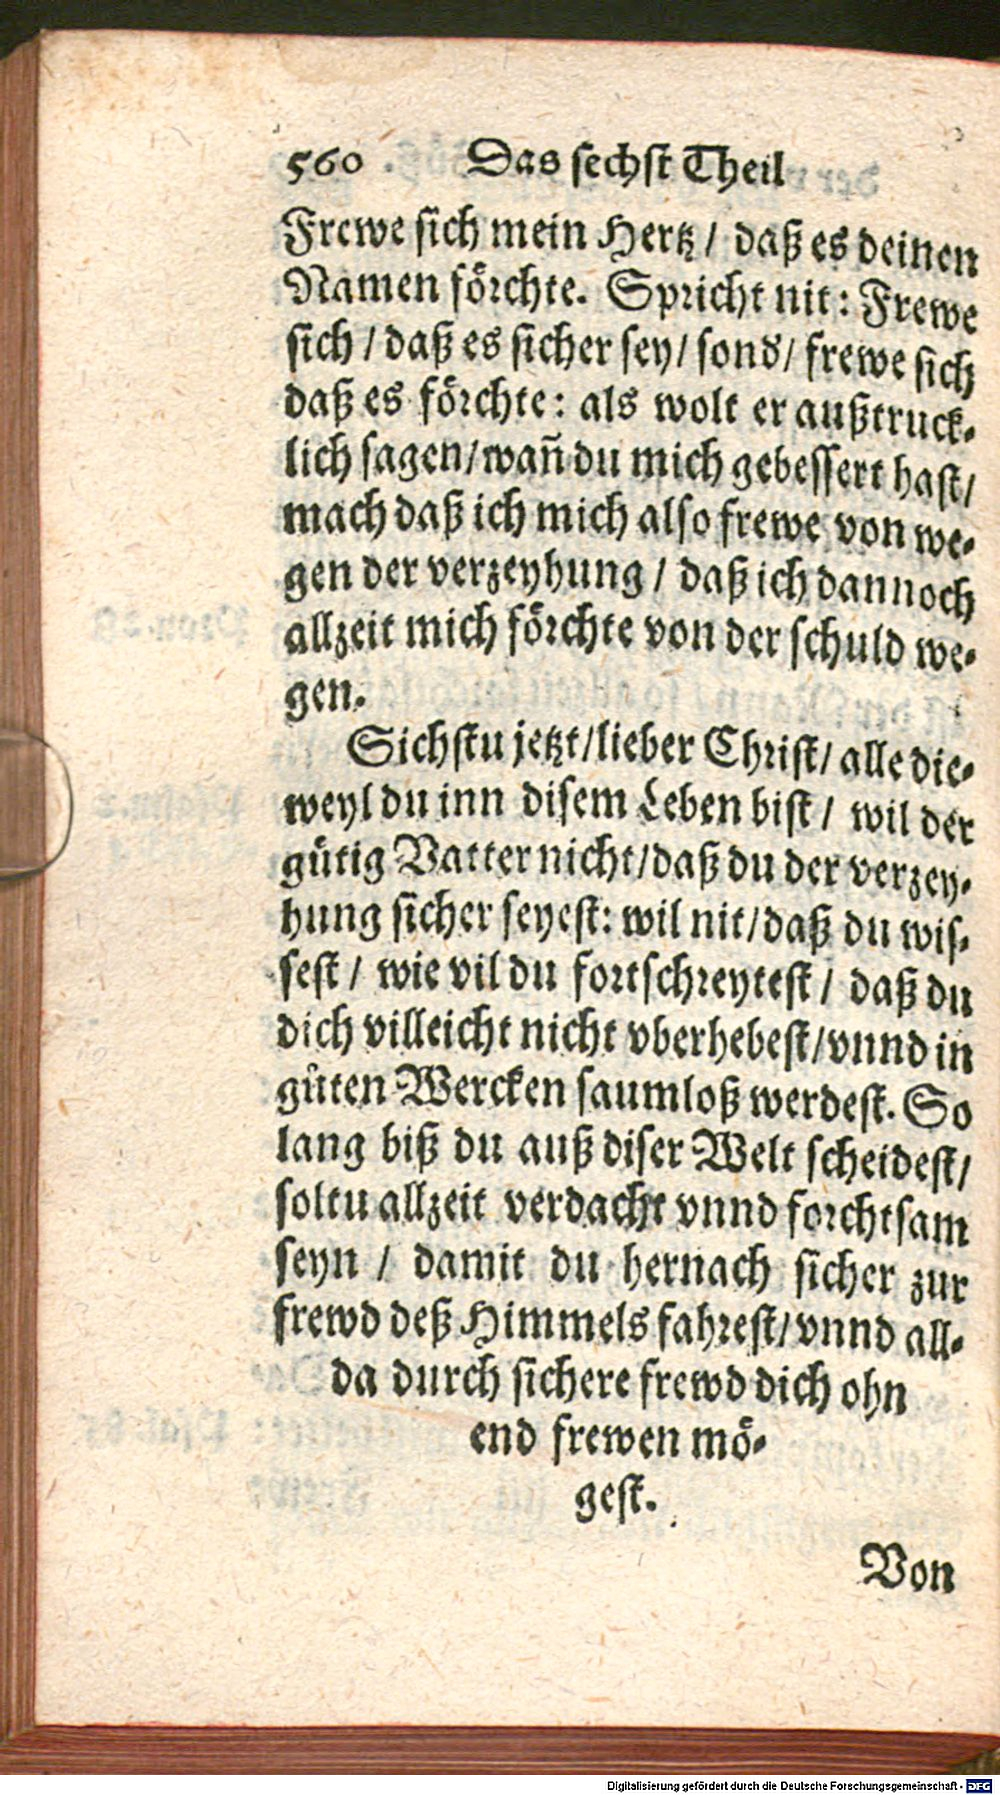 560 Das sechst Theil
Frewe sich mein Hertz / daß es deinen
Namen förchte. Spricht nit: Frewe
sich / daß es sicher sey / sond / frewe sich
daß es förchte: als wolt er außtruck-
lich sagen / wañ du mich gebessert hast /
mach daß ich mich also frewe von we-
gen der verzeyhung / daß ich dannoch
allzeit mich förchte von der schuld we-
gen.
Sichstu jetzt / lieber Christ / alle die-
weyl du inn disem Leben bist / wil der
gütig Vatter nicht / daß du der verzey-
hung sicher seyest: wil nit / daß du wis-
sest / wie vil du fortschreytest / daß du
dich villeicht nicht vberhebest / vnnd in
guͤten Wercken saumloß werdest. So
lang biß du auß diser Welt scheidest /
soltu allzeit verdacht vnnd forchtsam
seyn / damit du hernach sicher zur
frewd deß Himmels fahrest / vnnd all-
da durch sichere frewd dich ohn
end frewen mö-
gest.
Von
Digitalisierung gefördert durch die Deutsche Forschungsgemeinschaft - DFG